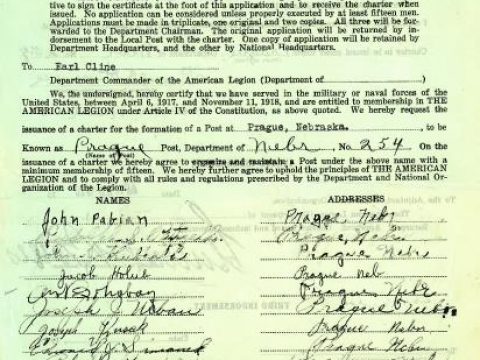 tive to sign the certificate at the foot of this application and to receive the charter when
issued. No application can be considered unless properly executed by at least fifteen men.
Applications must be made in triplicate, one original and two copies. All three will be for-
warded to the Department Chairman. The original application will be returned by in-
dorsement to the Local Post with the charter. One copy of application will be retained by
Department Headquarters, and the other by National Headquarters.
To Earl Cline
Department Commander of the American Legion (Department of )
We, the undersigned, hereby certify that we have served in the military or naval forces of the
United States, between April 6, 1917, and November 11, 1918, and are entitled to membership in THE
AMERICAN LEGION under Article IV of the Constitution, as above quoted. We hereby request the
issuance of a charter for the formation of a Post at Prague, Nebraska. , to be
Known as Prague Post, Department of Nebr No. 254 On the
(Name of Post)
issuance of a charter we hereby agree to organize and maintain a Post under the above name with a
minimum membership of fifteen. We hereby further agree to uphold the principles of THE AMERICAN
LEGION and to comply with all rules and regulations prescribed by the Department and National Or-
ganization of the Legion.
NAMES ADDRESSES
John Pabian Prague Nebr
Prague, Nebr
Prague Nebr
Jacob Kolieb Prague Neb
Prague Nebr
Joseph J Urban Prague Nebr.
Joseph Prague Nebr
Edward J. Prague Nebr